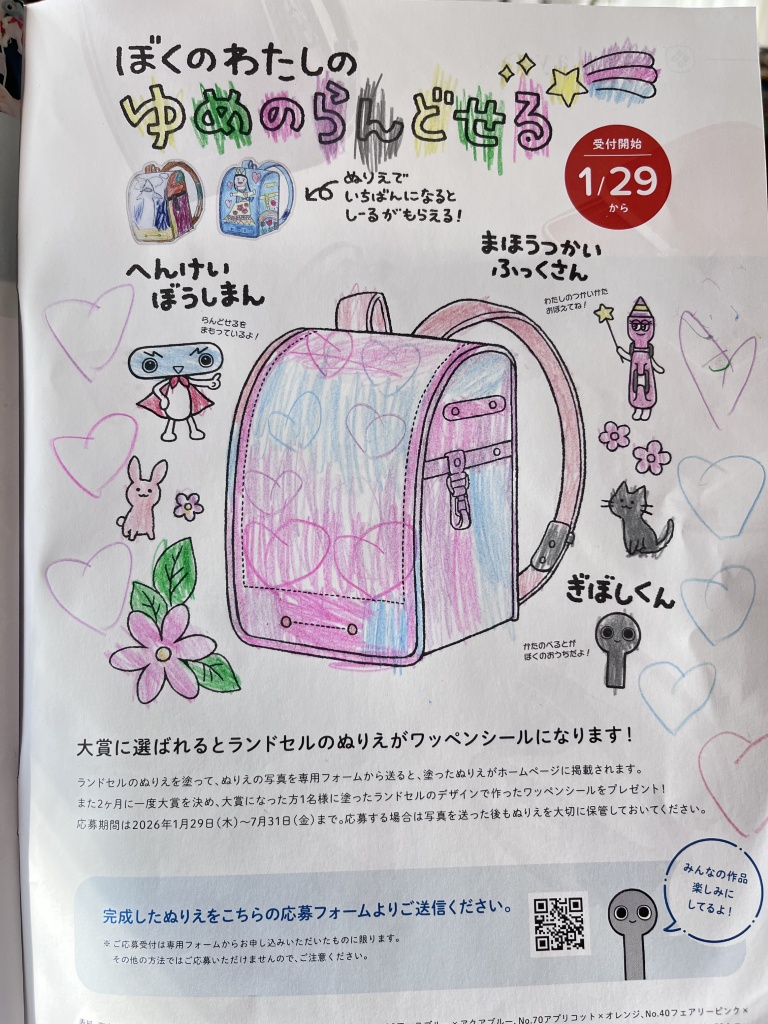 ぼくのわたしの
ゆめのらんどせる
受付開始
1/29
から
ぬりえで
いちばんになると
しーるがもらえる!
へんけい
ぼうしまん
らんどせるを
まもっているよ!
まほうつかい
ふっくさん
わたしのつかいかた
おぼえてね!
ぎぼしくん
かたのべるとが
ぼくのおうちだよ!
大賞に選ばれるとランドセルのぬりえがワッペンシールになります!
ランドセルのぬりえを塗って、ぬりえの写真を専用フォームから送ると、塗ったぬりえがホームページに掲載されます。
また2ヶ月に一度大賞を決め、大賞になった方1名様に塗ったランドセルのデザインで作ったワッペンシールをプレゼント!
応募期間は2026年1月29日(木)~7月31日(金)まで。応募する場合は写真を送った後もぬりえを大切に保管しておいてください。
みんなの作品
楽しみに
してるよ!
完成したぬりえをこちらの応募フォームよりご送信ください。
※ご応募受付は専用フォームからお申し込みいただいたものに限ります。
その他の方法ではご応募いただけませんので、ご注意ください。
ブルー×アクアブルー、No.70アプリコット×オレンジ、No.40フェアリーピンク×